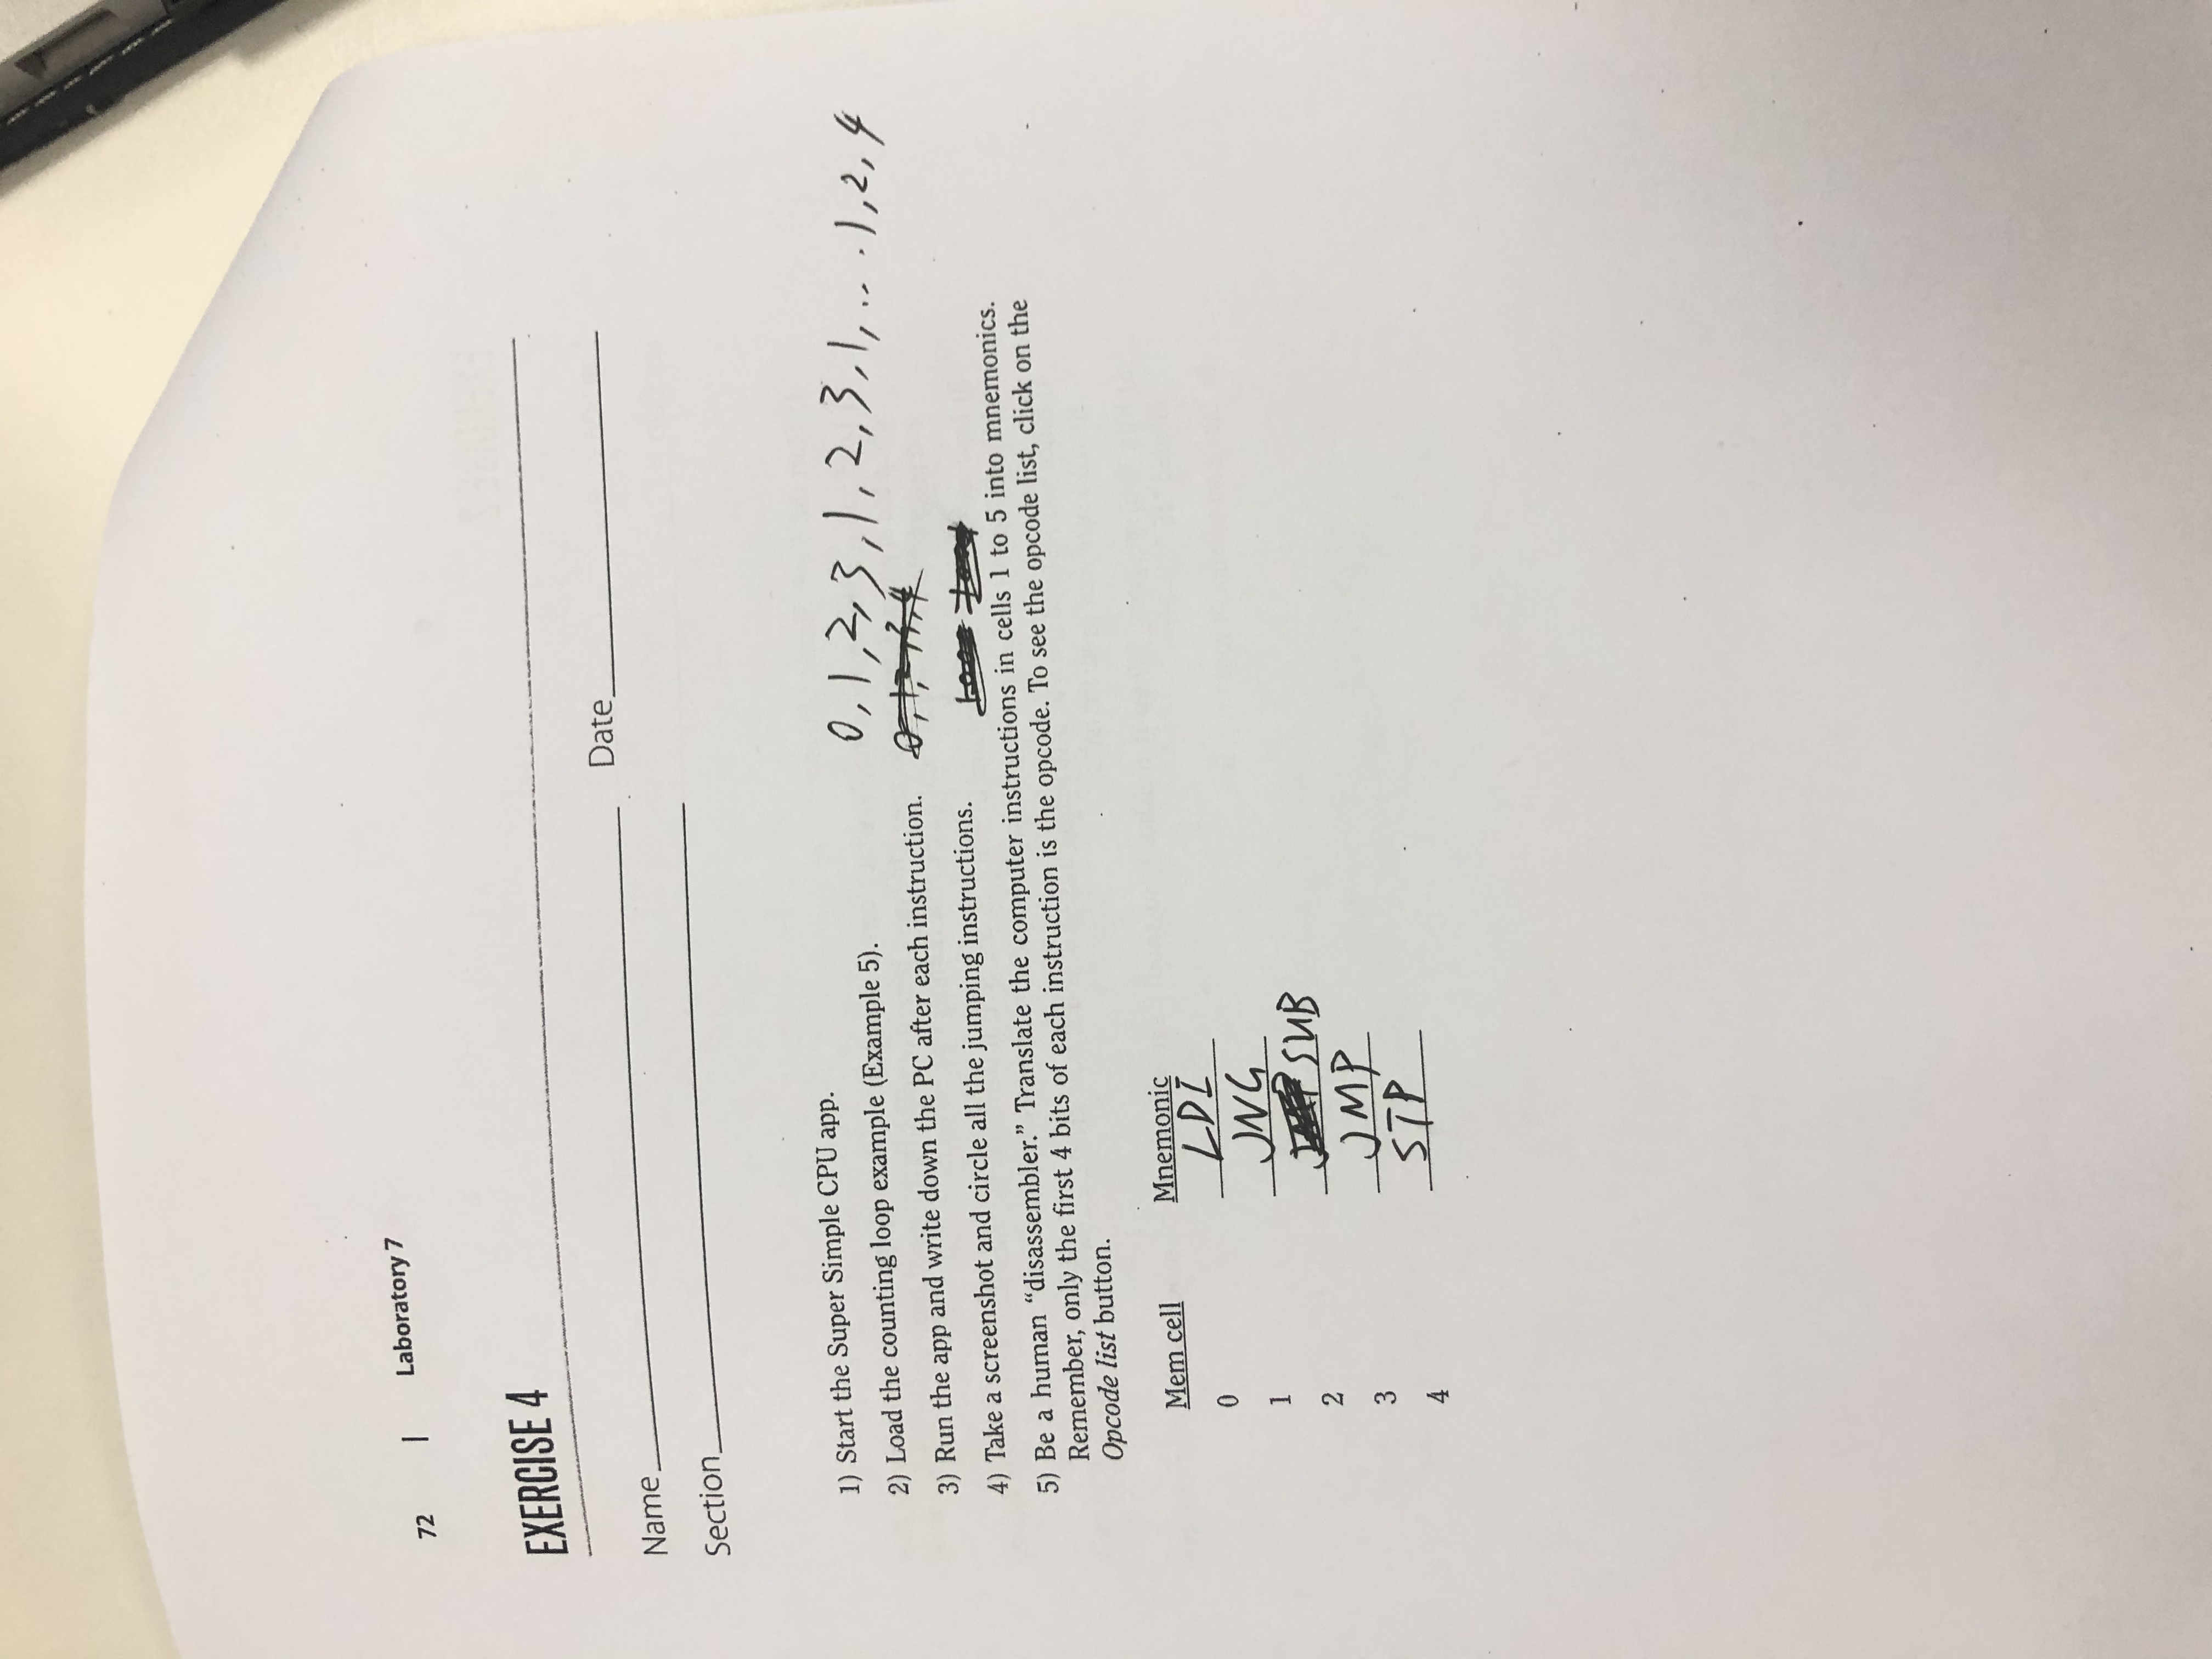 72 | Laboratory 7
EXERCISE 4
Name
Date
Section
1) Start the Super Simple CPU app.
0, 1, 2, 3, 1, 2, 3, 1, ... . 1, 2, 4
2) Load the counting loop example (Example 5).
3) Run the app and write down the PC after each instruction.
4) Take a screenshot and circle all the jumping instructions.
5) Be a human “disassembler.” Translate the computer instructions in cells 1 to 5 into mnemonics.
Remember, only the first 4 bits of each instruction is the opcode. To see the opcode list, click on the
Opcode list button.
Mem cell Mnemonic
0 LDI
1 JNG
2 SUB
3 JMP
4 STP